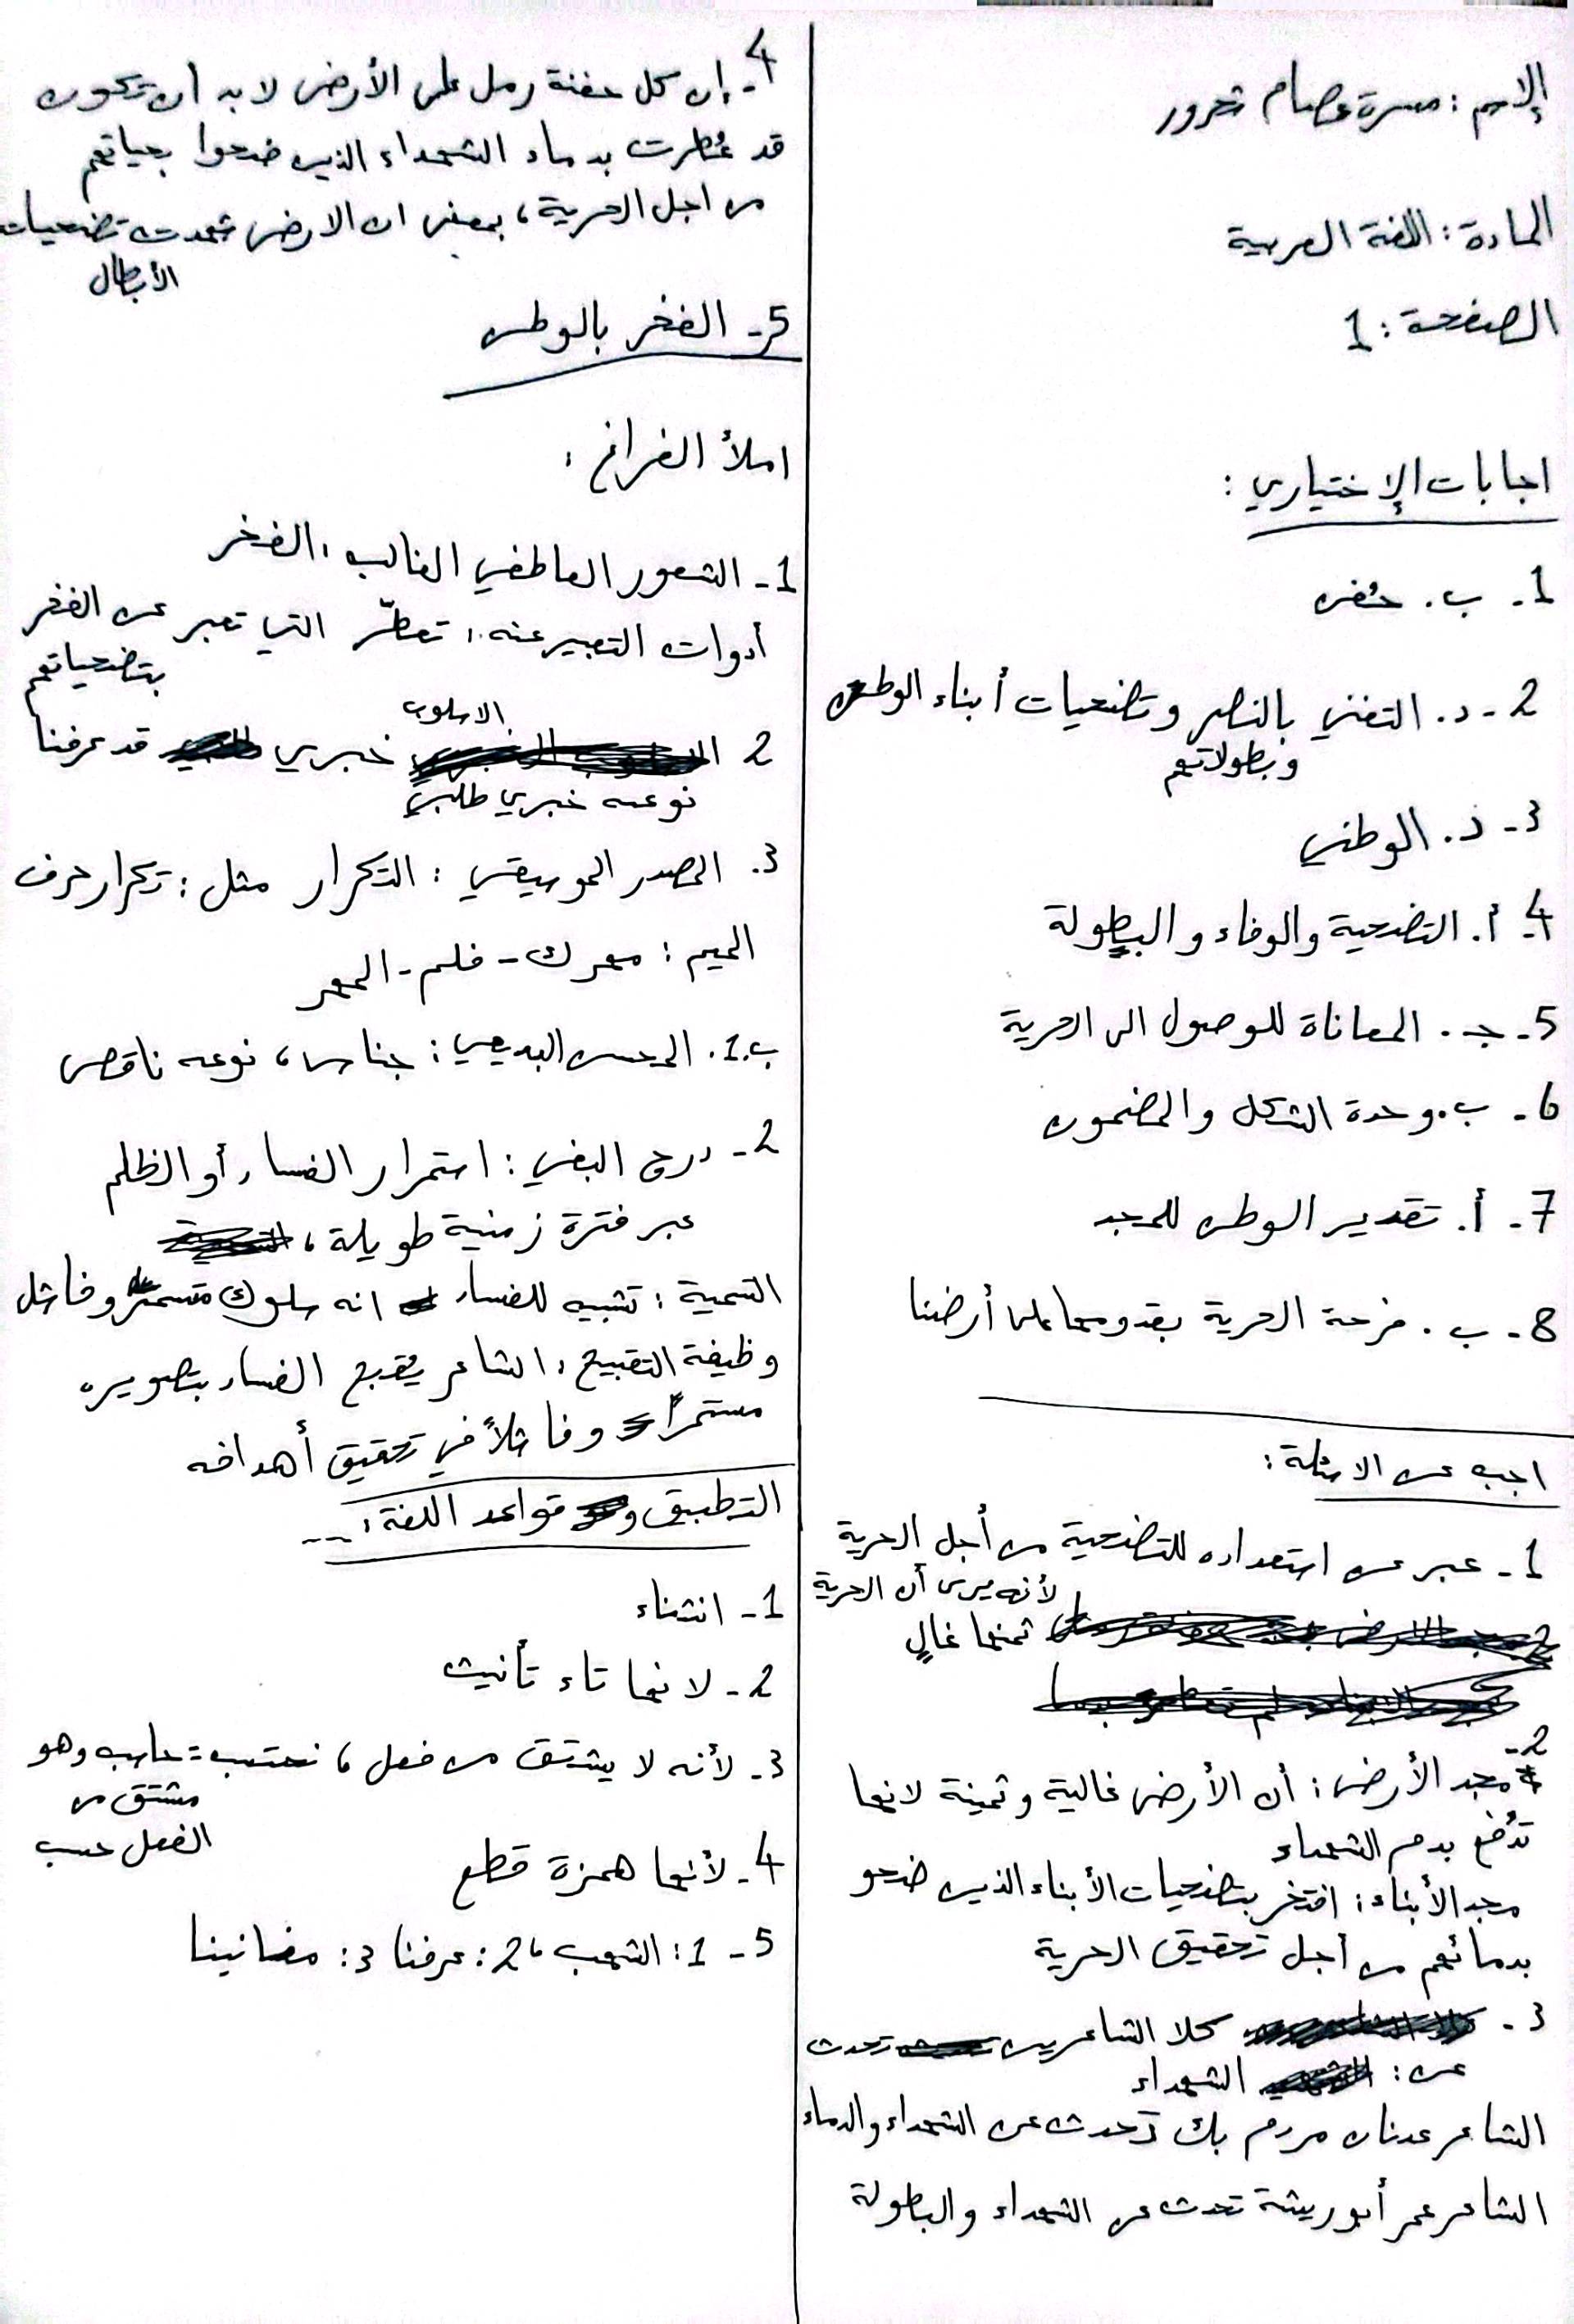 الإسم : مسرة عصام تحرور
المادة : اللغة العربية
الصفحة : 1
اجابات الإختياري :
1. ب. حُفر
2 - د. التغني بالنصر وتضحيات أبناء الوطن
وبطولاتهم
3 - د. الوطني
4 - أ. التضحية والوفاء والبطولة
5 - جـ. المعاناة للوصول الى الحرية
6 - ب. وحدة الشكل والمضمون
7 - أ. تقدير الوطن للمجد
8 - ب. فرحة الحرية بقدومها على أرضنا
اجب عن الاسئلة :
1 - عبر عن استعداده للتضحية من أجل الحرية
لأنه يرى أن الحرية
ثمنها غالٍ
2 - مجد الأرض : أن الأرض غالية وثمينة لانها
تدفع بدم الشهداء
مجد الأبناء : افتخر بتضحيات الأبناء الذين ضحو
بدمائهم من أجل تحقيق الحرية
3 - كلا الشاعرين تحدث
عن : الشهداء
الشاعر عدنان مردم بك تحدث عن الشهداء والدماء
الشاعر عمر أبو ريشة تحدث عن الشهداء والبطولة
4 - إن كل حفنة رمل على الأرض لا بد ان تكون
قد عُطرت بدماء الشهداء الذين ضحوا بحياتهم
من اجل الحرية، بمعنى ان الارض شهدت تضحيات
الأبطال
5 - الفخر بالوطن
املأ الفراغ :
1 - الشعور العاطفي الغالب : الفخر
أدوات التعبير عنه : تعطّر التي تعبر عن الفخر
بتضحياتهم
2 الاسلوب خبري قد عرفنا
نوعه خبري طلبي
3. المصدر الموسيقي : التكرار مثل : تكرار حرف
الميم : معرك - فلم - المهر
ب.1. المحسن البديعي : جناس، نوعه ناقص
2 - درج البغي : استمرار الفساد أو الظلم
عبر فترة زمنية طويلة،
التسمية : تشبيه للفساد انه سلوك مستمر وفاشل
وظيفة التقبيح : الشاعر يقبح الفساد بتصويره
مستمراً وفاشلاً في تحقيق أهدافه
التطبيق و قواعد اللغة : ---
1 - انتشاء
2 - لانها تاء تأنيث
3 - لأنه لا يشتق من فعل، نحتسب = حاسب وهو
مشتق من
الفعل حسب
4 - لأنها همزة قطع
5 - 1 : الشهب، 2 : عرفنا 3 : مغانينا